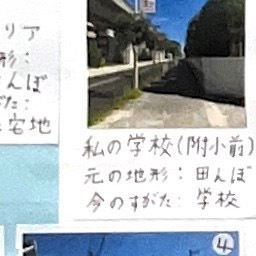 リア
形：
んぼ
た：
宅地
私の学校(附小前)
元の地形：田んぼ
今のすがた：学校
4